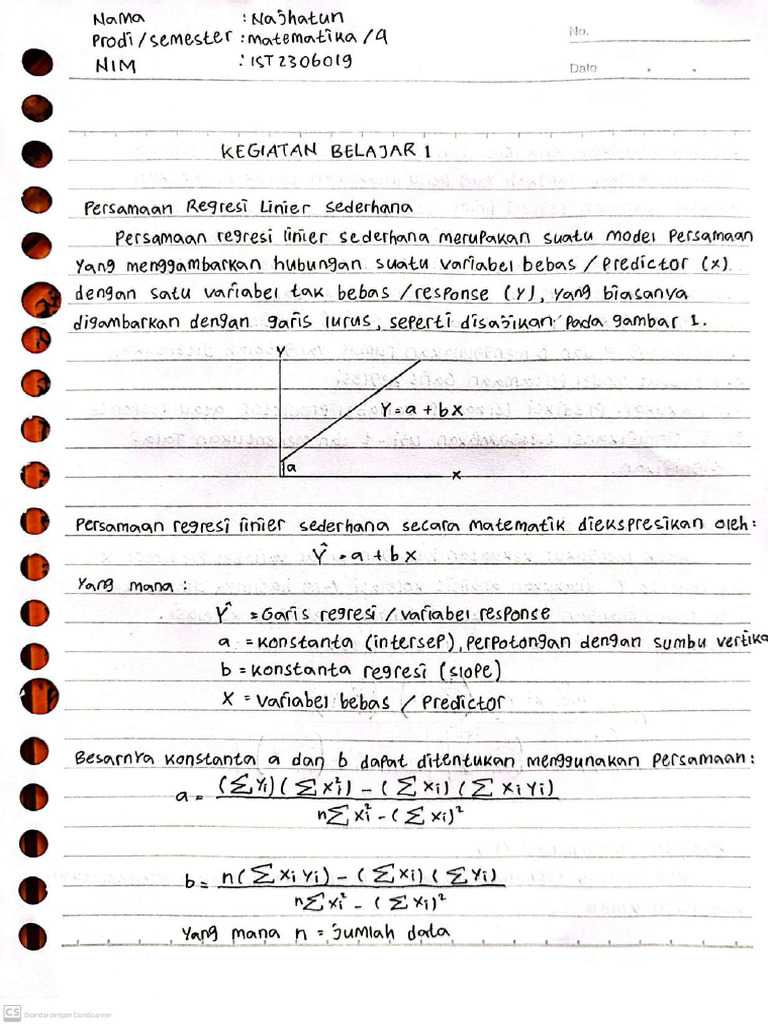 Nama : Najhatun
Prodi/semester : matematika/4
NIM : IST2306019
No.
Date
KEGIATAN BELAJAR 1
Persamaan Regresi Linier sederhana
Persamaan regresi linier sederhana merupakan suatu model Persamaan
Yang menggambarkan hubungan suatu variabel bebas / Predictor (x)
dengan satu variabel tak bebas /response (Y), yang biasanya
digambarkan dengan garis lurus, seperti disajikan Pada gambar 1.
Y
Y = a + bx
a
x
Persamaan regresi linier sederhana secara matematik diekspresikan oleh:
Ŷ = a + bx
Yang mana :
Ŷ = Garis regresi / variabel response
a = Konstanta (intersep), perpotongan dengan sumbu vertika
b = Konstanta regresi (slope)
X = Variabel bebas / Predictor
Besarnya konstanta a dan b dapat ditentukan menggunakan Persamaan:
a = (∑Yi)(∑Xi²) - (∑Xi)(∑XiYi) / n∑Xi² - (∑Xi)²
b = n(∑XiYi) - (∑Xi)(∑Yi) / n∑Xi² - (∑Xi)²
Yang mana n = jumlah data
CS Dipindai dengan CamScanner